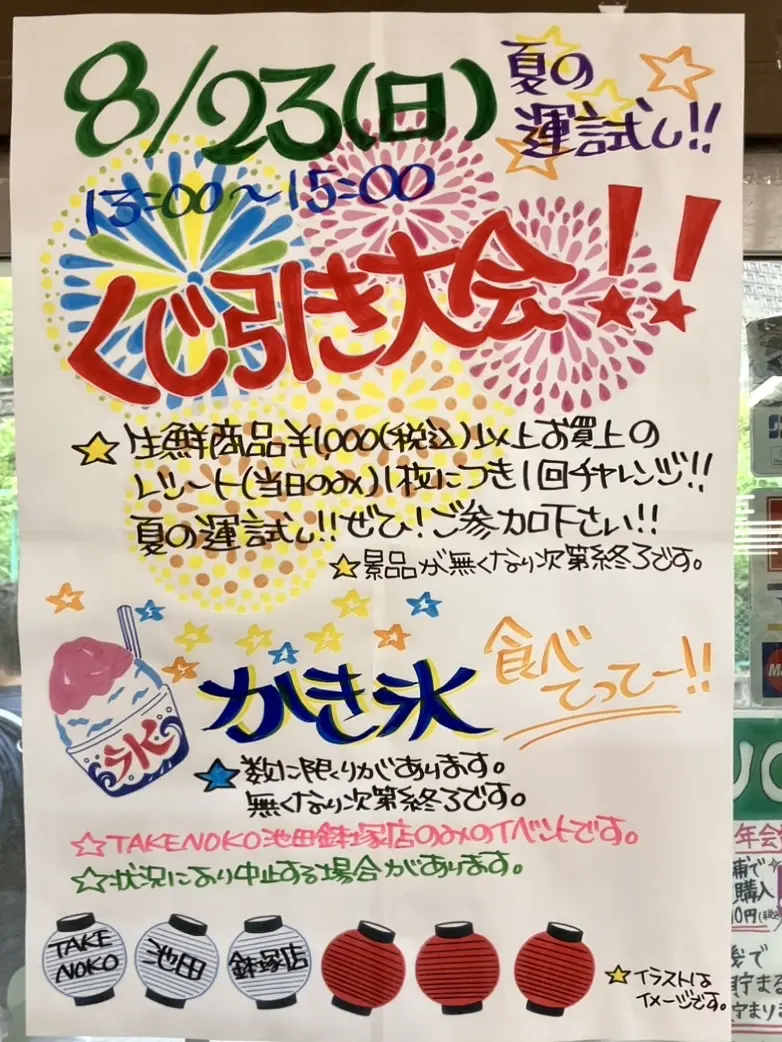 8/23(日)
夏の
運試し!!
13:00〜15:00
くじ引き大会!!
生鮮商品¥1,000(税込)以上お買上の
レシート(当日のみ)1枚につき1回チャレンジ!!
夏の運試し!!ぜひ!ご参加下さい!!
景品が無くなり次第終了です。
氷
かき氷
食べ
てってー!!
数に限りがあります。
無くなり次第終了です。
☆TAKENOKO池田鉢塚店のみのイベントです。
☆状況により中止する場合があります。
TAKE
NOKO
池田
鉢塚店
イラストは
イメージです。
年会
購入
0円(税
貯まる
貯まりま